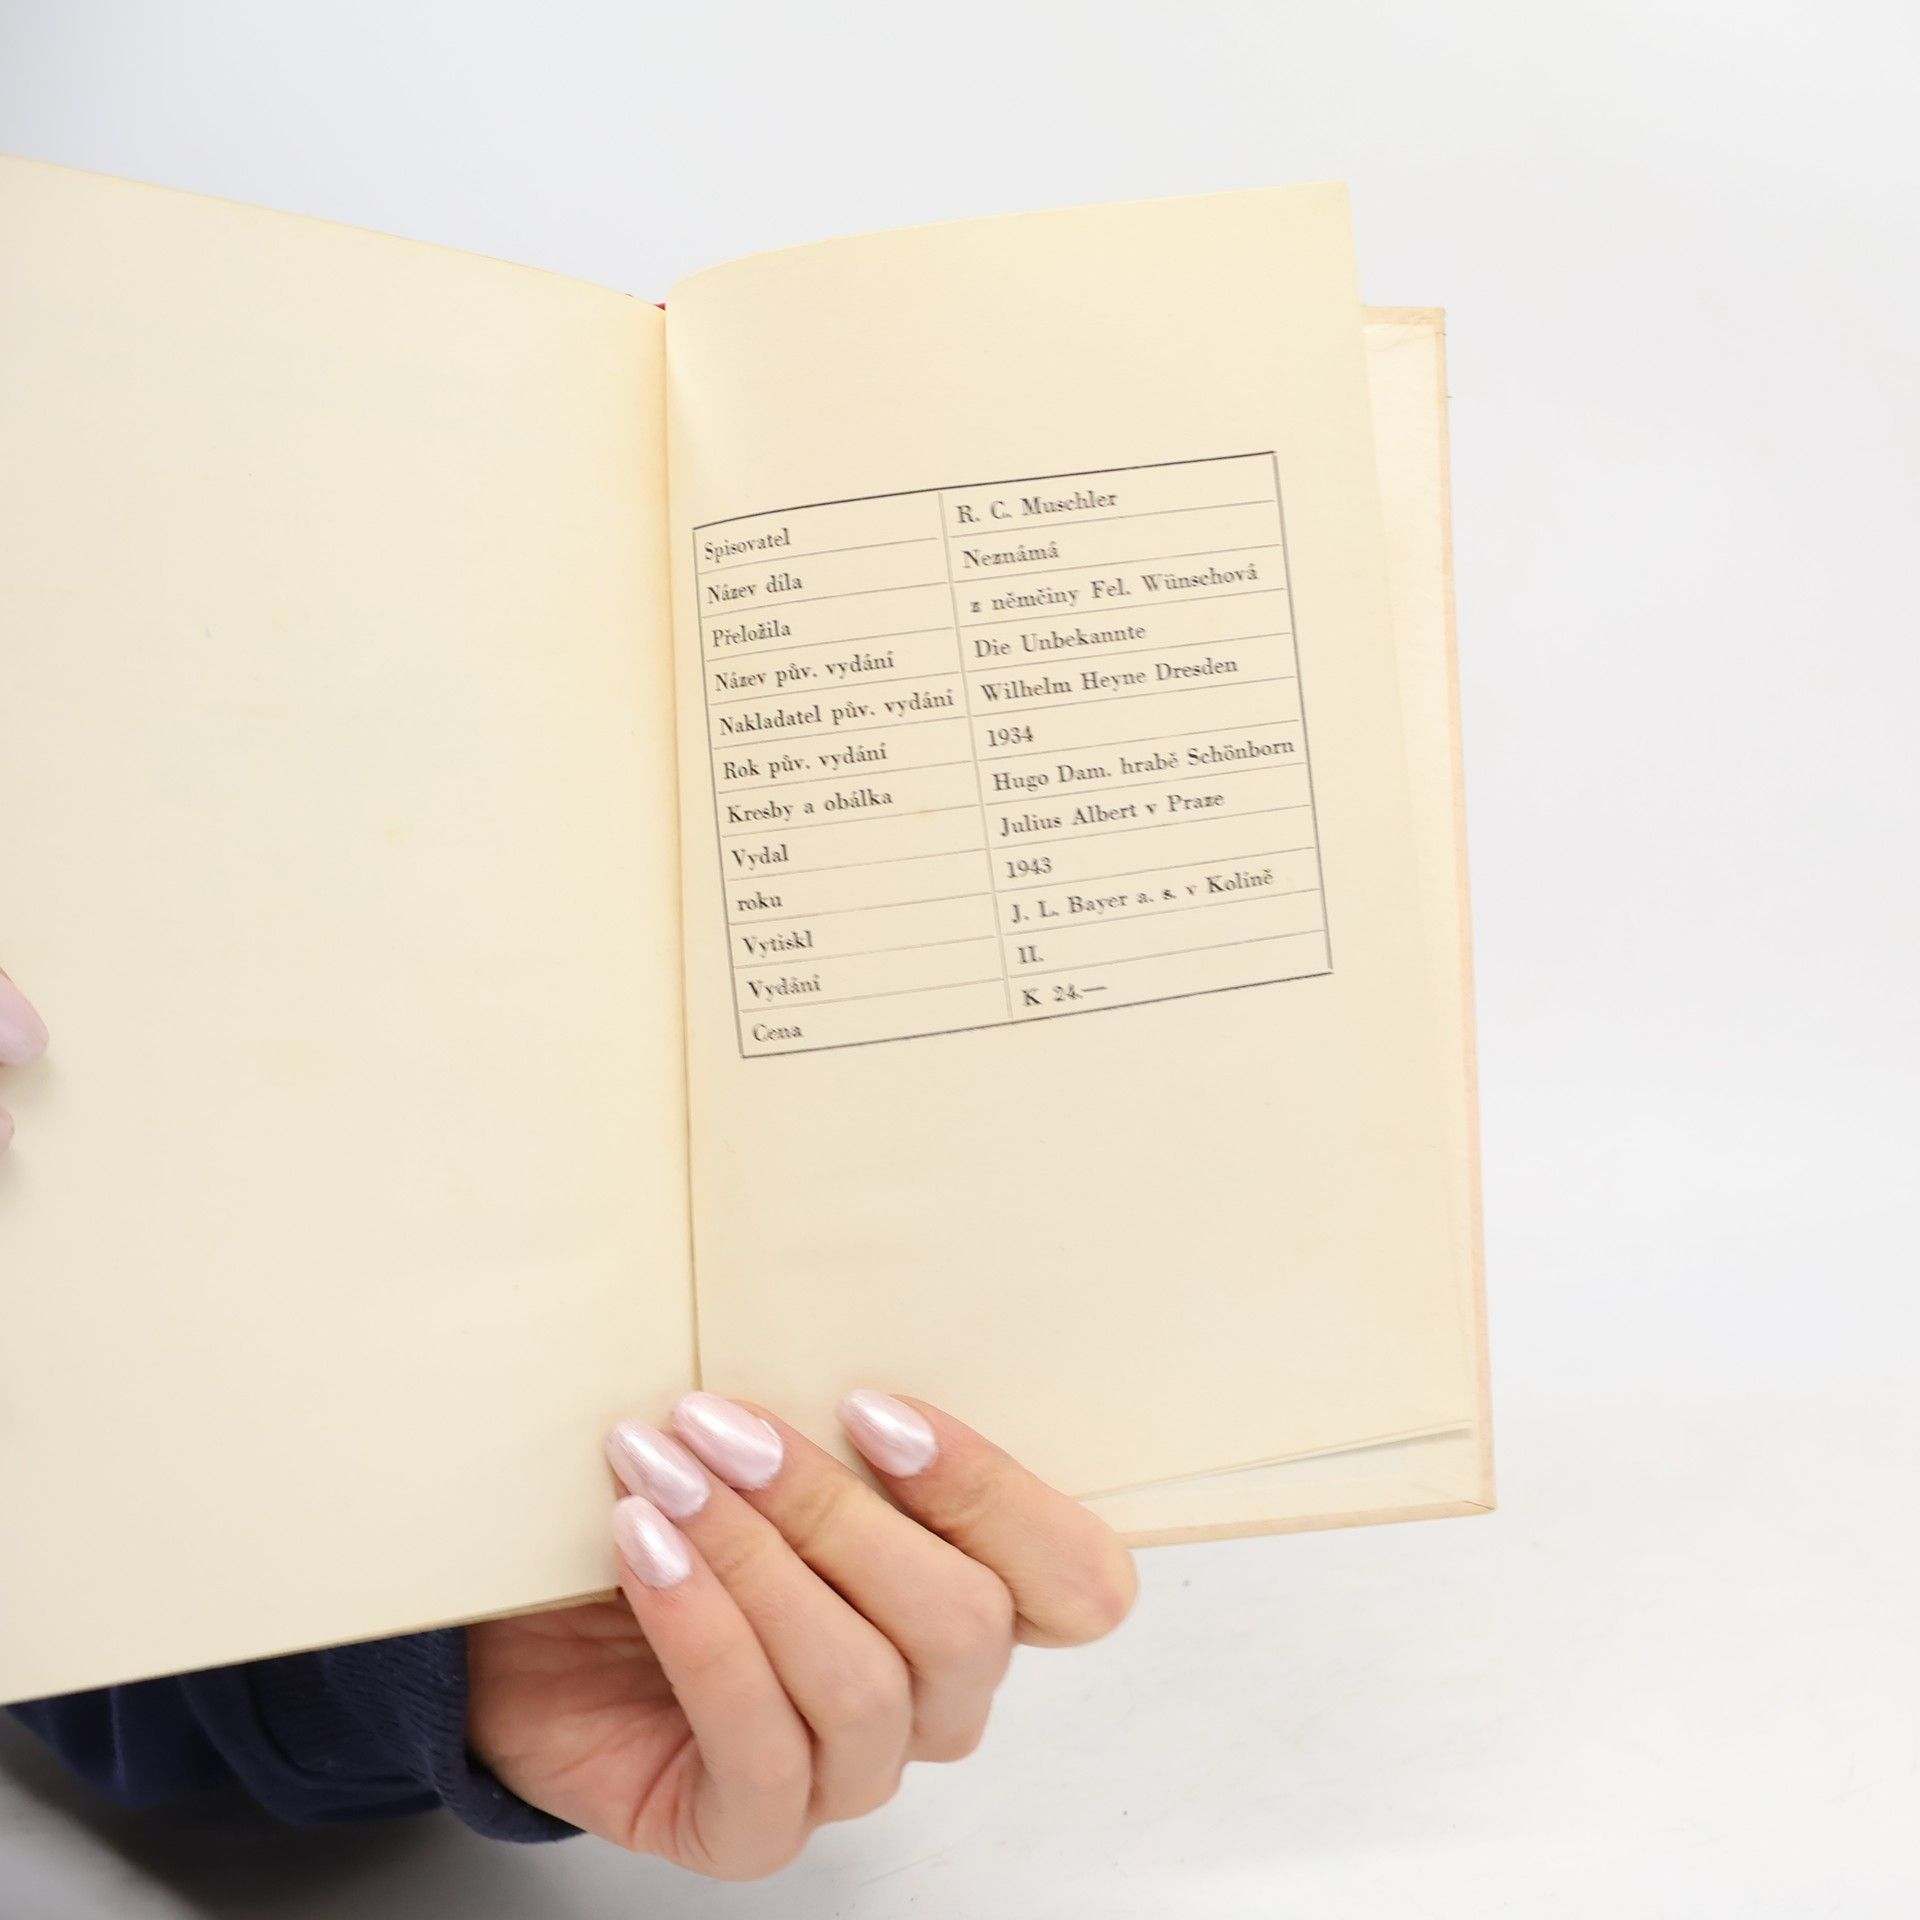 Spisovatel R. C. Muschler
Název díla Neznámá
Přeložila z němčiny Fel. Wünschová
Název pův. vydání Die Unbekannte
Nakladatel pův. vydání Wilhelm Heyne Dresden
Rok pův. vydání 1934
Kresby a obálka Hugo Dam. hrabě Schönborn
Vydal Julius Albert v Praze
roku 1943
Vytiskl J. L. Bayer a. s. v Kolíně
Vydání II.
Cena K 24.—